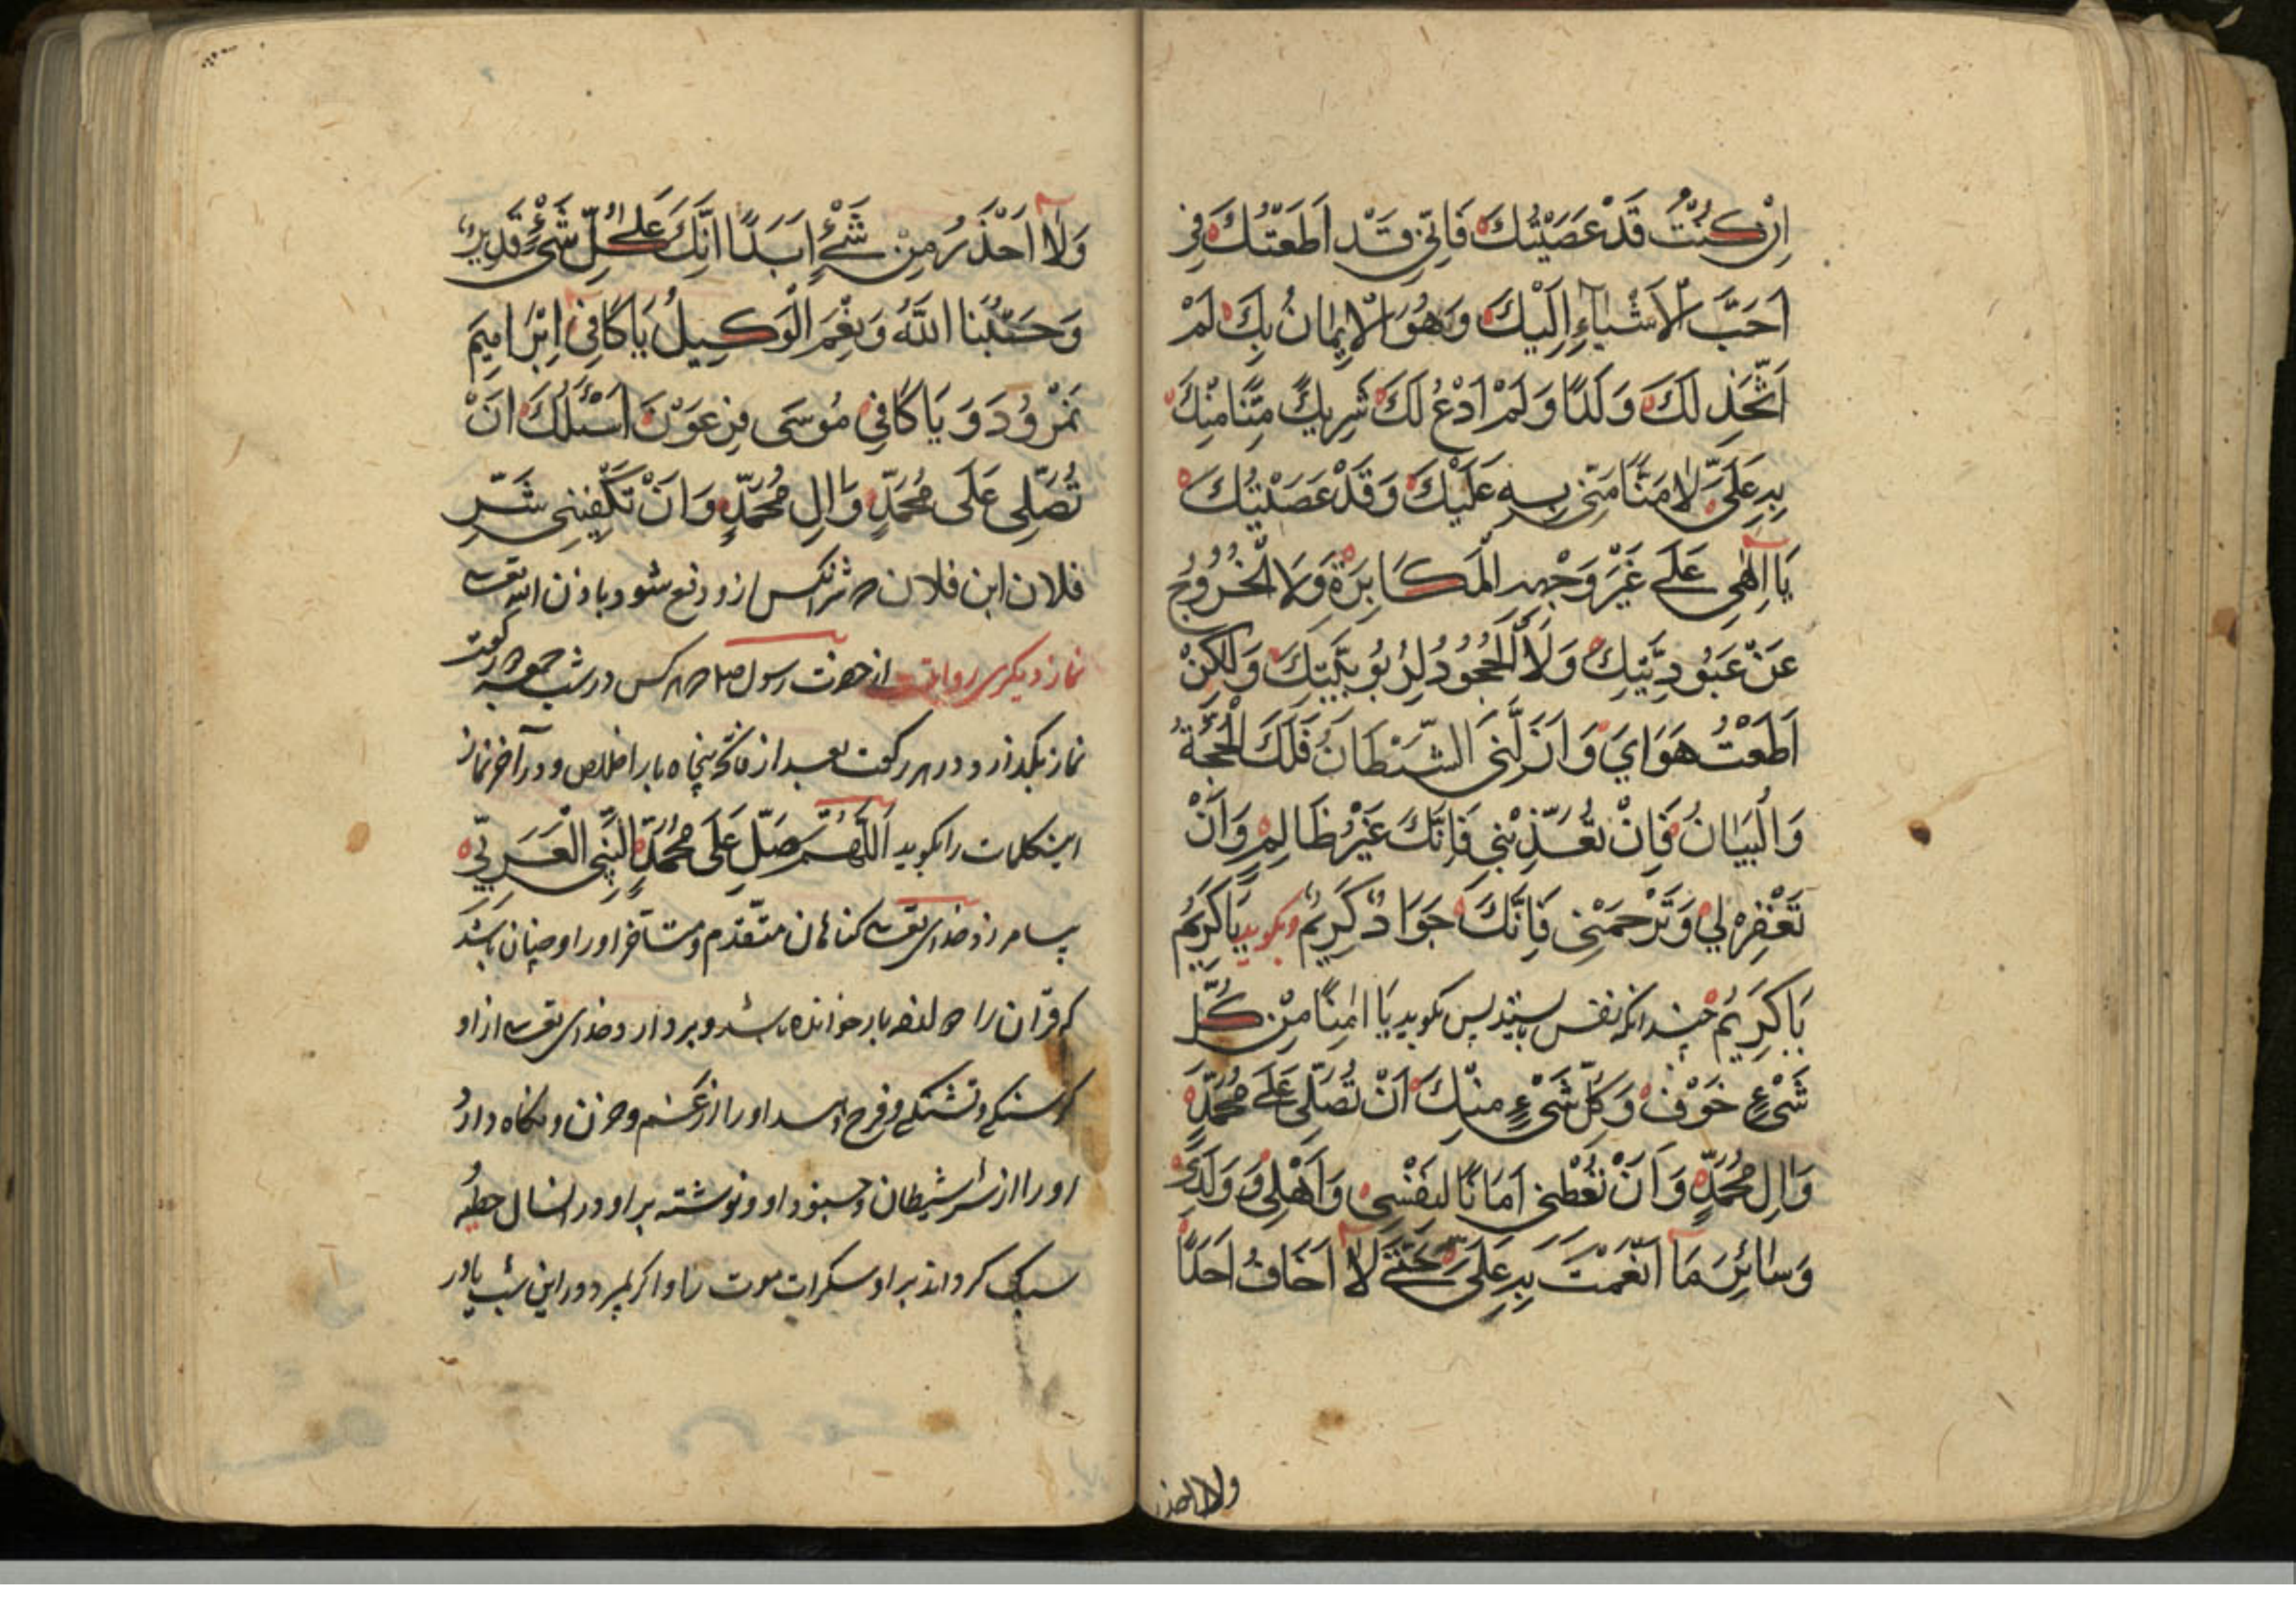 اِنْ كُنْتُ قَدْ عَصَيْتُكَ فَاِنّي قَدْ اَطَعْتُكَ في
اَحَبَّ الْاَشْيٰاءِ اِلَيْكَ وَهُوَ الْاِيمٰانُ بِكَ لَمْ
اَتَّخِذْ لَكَ وَلَدًا وَلَمْ اَدْعُ لَكَ شَرِيكً مَنًّا مِنْكَ
بِهِ عَلَيَّ لا مَنًّا مِنّي بِهِ عَلَيْكَ وَقَدْ عَصَيْتُكَ
يَا اِلٰهِي عَلٰى غَيْرِ وَجْهِ الْمَكَابِرَةِ وَلَا الْخُرُوُجِ
عَنْ عَبُودِيَّتِكَ وَلَا الْجُحُوُدُ لِرُبُوبِيَّتِكَ وَلٰكِنْ
اَطَعْتُ هَوَايَ وَاَزَلَّنِي الشَّيْطَانُ فَلَكَ الْحُجَّةُ
وَالْبَيَانُ فَاِنْ تُعَذِّبْنِي فَاِنَّكَ غَيْرُ ظَالِمٍ وَاَنْ
تَغْفِرْ لِي وَتَرْحَمْنِي فَاِنَّكَ جَوَادٌ كَرِيمٌ وبكويد يَاكَرِيمُ
يَاكَرِيمُ چندانكه نفس پس بكويد يَا اٰمِنًا مِنْ كُلِّ
شَيْءٍ خَوْفُ وَكُلُّ شَيْءٍ مِنْكَ اَنْ تُصَلِّيَ عَلٰى مُحَمَّدٍ
وَاٰلِ مُحَمَّدٍ وَاَنْ تُعْطِيَنِي اَمَانًا لِنَفْسِي وَاَهْلِي وَوَلَدِي
وَسٰائِرِ مَا اَنْعَمْتَ بِهِ عَلَيَّ حَتّٰى لاٰ اَخَافُ اَحَدًا
ولا احذر
وَلاٰ اَحْذَرُ مِنْ شَيْءٍ اَبَدًا اِنَّكَ عَلٰى كُلِّ شَيْءٍ قَدِيرٌ
وَحَسْبُنَا اللّٰهُ وَنِعْمَ الْوَكِيلُ يَا كَافِيَ اِبْرَاهِيمَ
نَمْرُودَ وَ يَا كَافِي مُوسَى فِرْعَوْنَ اَسْئَلُكَ اَنْ
تُصَلِّي عَلَى مُحَمَّدٍ وَاٰلِ مُحَمَّدٍ وَاَنْ تَكْفِيَنِي شَرِّ
فلان ابن فلان شر انكس ازو دفع شود باذن الله تعالی
نماز ديكری روايت از حضرت رسول هركس در شب جمعه ركعت
نماز بكذارد در هر ركعت بعد از فاتحه پنجاه بار اخلاص و در آخر نماز
اين كلمات را بكويد اَللّٰهُمَّ صَلِّ عَلَى مُحَمَّدٍ النَّبِيِّ الْعَرَبِيِّ
بيامرزد خدای تعالی كناهان متقدم و متأخر او را و چنان باشد
كه قرآن را بار خوانده باشد و بردارد خدای تعالی از او
كرسنكی و تشنكی و او را از غم و حزن و نكاه دارد
او را از شر شيطان و او و نوشته بر او در انسال خطيه
سبك كرداند بر او سكرات موت را و اكر بميرد در اين شب يا در